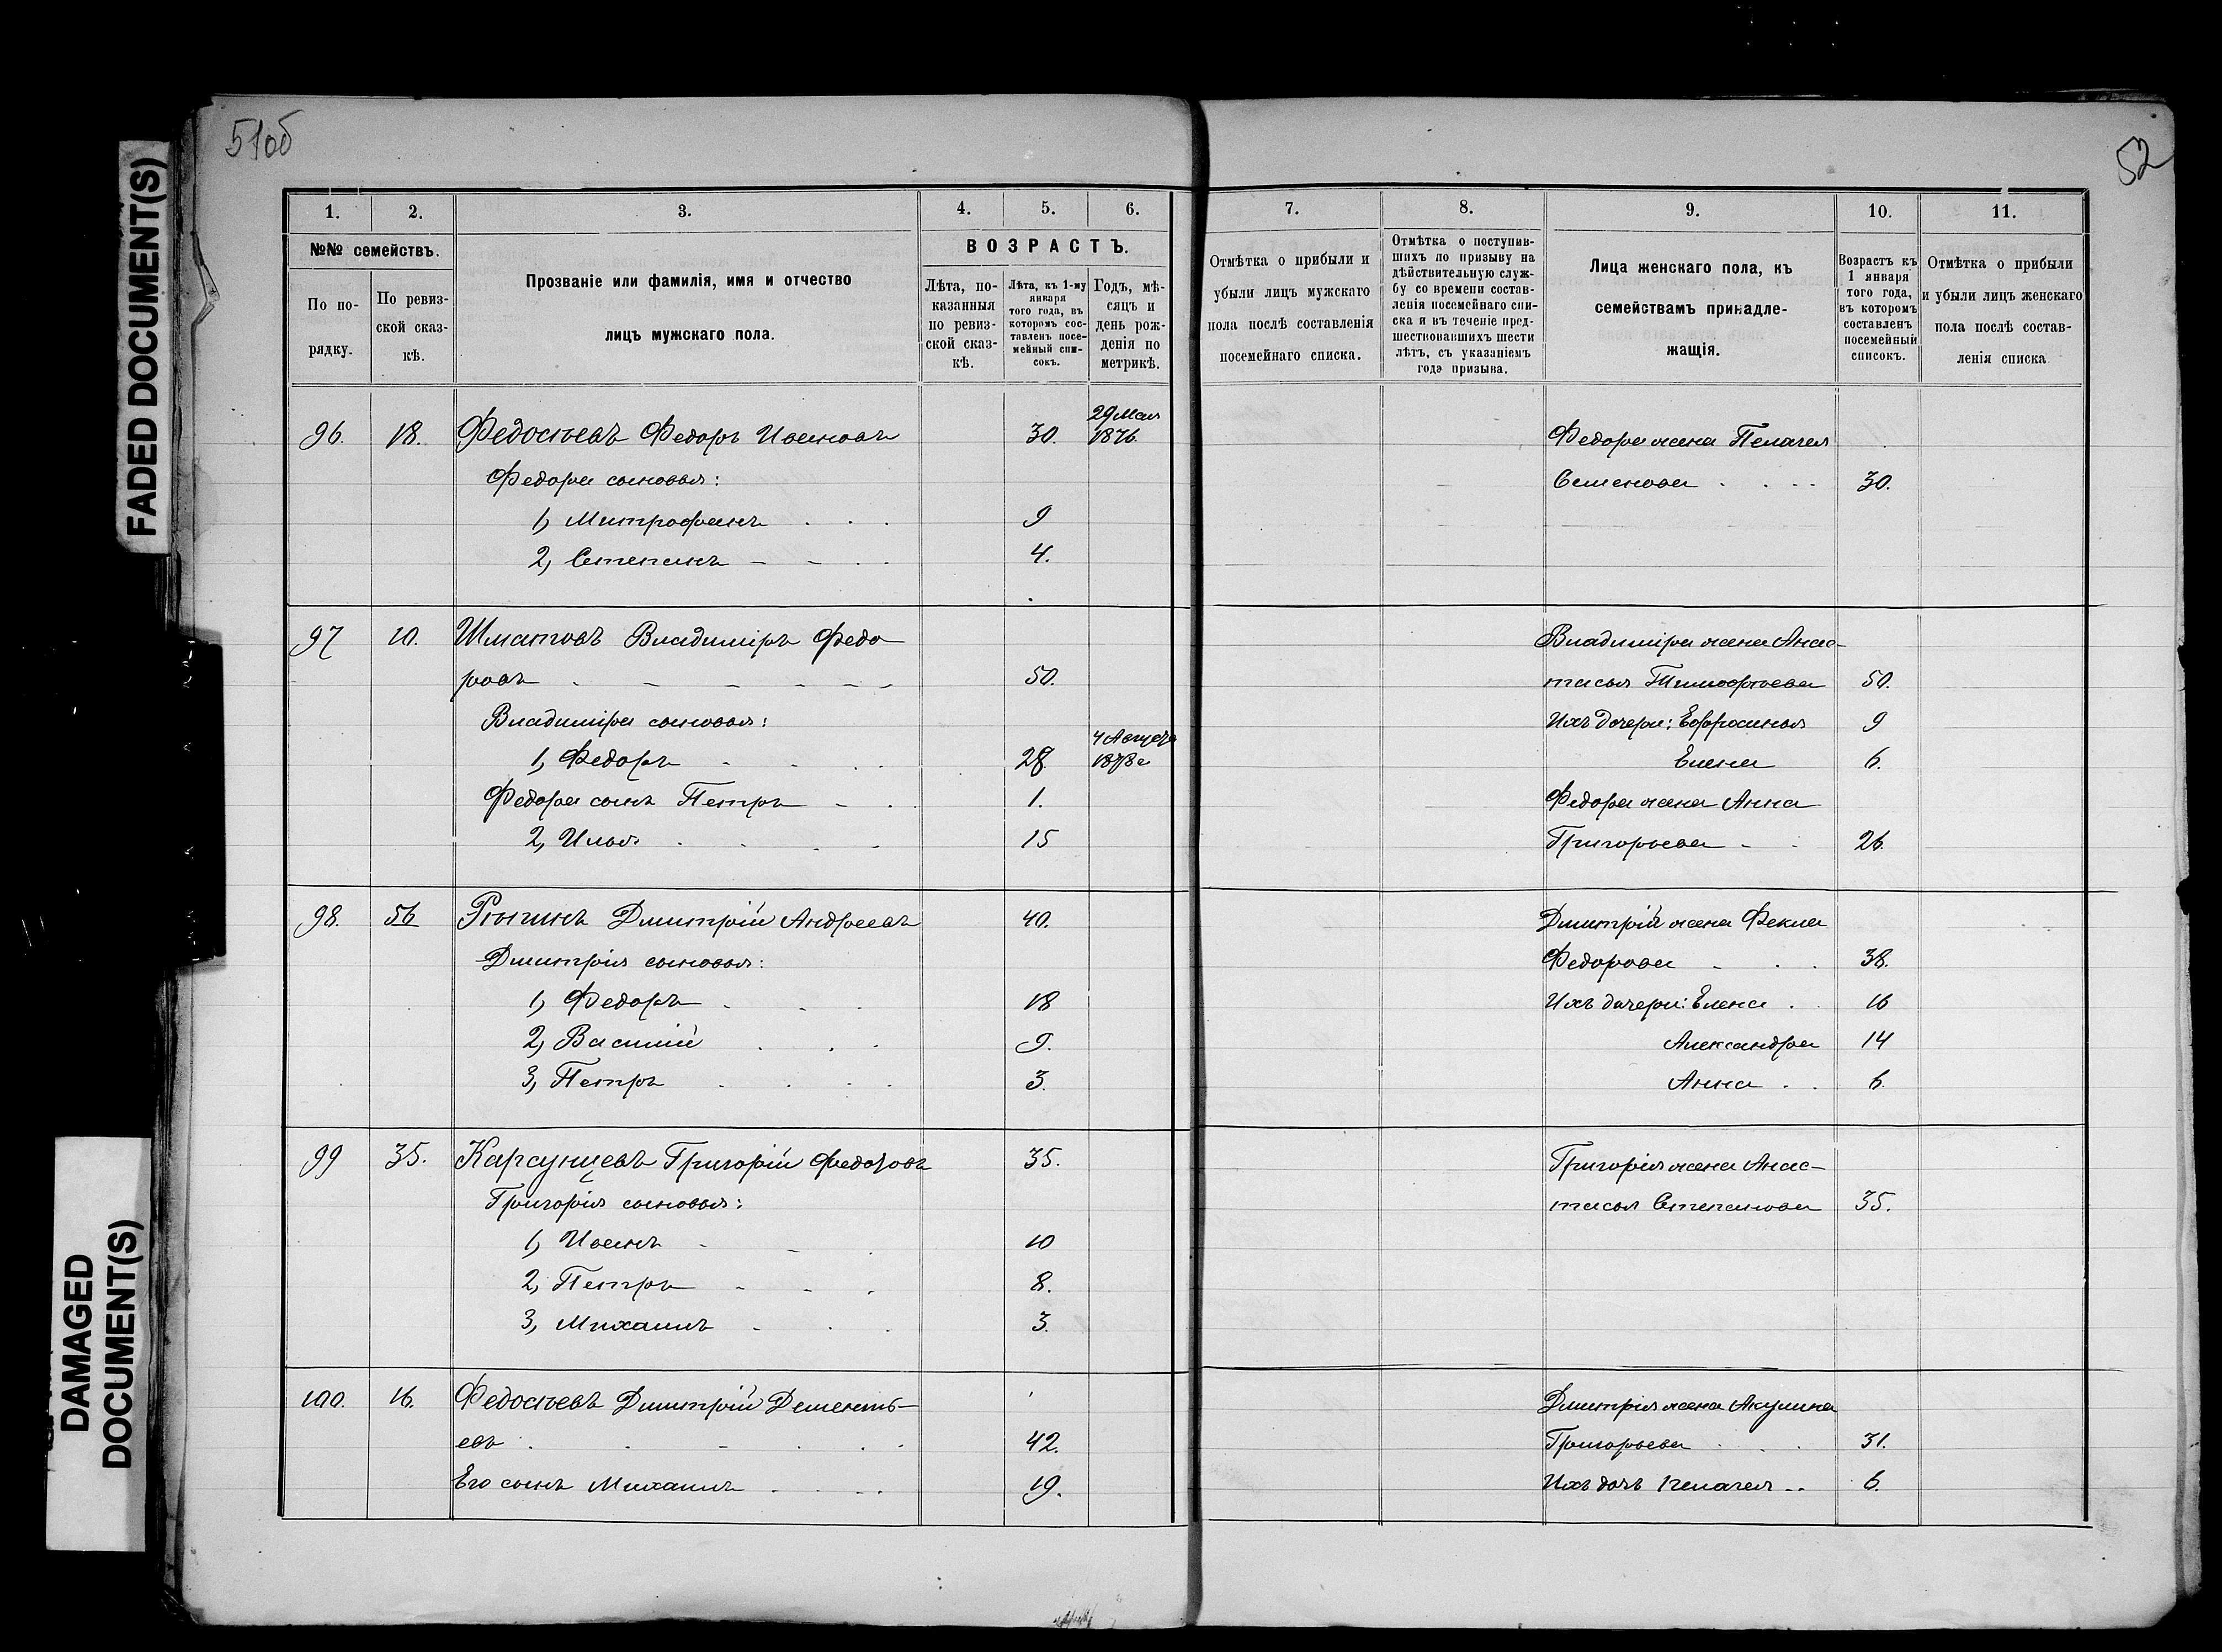 51об
52
FADED DOCUMENT(S)
DAMAGED
DOCUMENT(S)
1. 2. 3. 4. 5. 6. 7. 8. 9. 10. 11.
№№ семействъ.
По по-
рядку.
По ревиз-
ской сказ-
кѣ.
Прозваніе или фамилія, имя и отчество
лицъ мужскаго пола.
ВОЗРАСТЪ.
Лѣта, по-
казанныя
по ревиз-
ской сказ-
кѣ.
Лѣта, къ 1-му
января
того года, въ
которомъ сос-
тавленъ посе-
мейный спи-
сокъ.
Годъ, мѣ-
сяцъ и
день рож-
денія по
метрикѣ.
Отмѣтка о прибыли и
убыли лицъ мужскаго
пола послѣ составленія
посемейнаго списка.
Отмѣтка о поступив-
шихъ по призыву на
дѣйствительную служ-
бу со времени состав-
ленія посемейнаго спи-
ска и въ теченіе пред-
шествовавшихъ шести
лѣтъ, съ указаніемъ
года призыва.
Лица женскаго пола, къ
семействамъ принадле-
жащія.
Возрастъ къ
1 января
того года,
въ которомъ
составленъ
посемейный
списокъ.
Отмѣтка о прибыли
и убыли лицъ женскаго
пола послѣ состав-
ленія списка
29 Мая
96. 18. Федосѣевъ Федоръ Ивановъ 30. 1876 Федора жена Пелагея
Федора сыновья: Семенова 30.
1, Митрофанъ 9
2, Степанъ 4.
97 10. Шматовъ Владиміръ Федо Владиміра жена Анас-
ровъ 50. тасья Тимофѣева 50.
Владиміра сыновья: Ихъ дочери: Ефросинья 9
4 Августа
1, Федоръ 28. 1878 г Елена 6.
Федора сынъ Петръ 1. Федора жена Анна
2, Илья 15 Григорьева 26.
98. 56 Дмитрій Андреевъ 40. Дмитрія жена Фекла
Дмитрія сыновья: Федорова 38.
1, Федоръ 18 Ихъ дочери: Елена 16
2, Василій 9. Александра 14
3, Петръ 3. Анна 6.
99 35. Карсунцевъ Григорій Федотовъ 35. Григорія жена Анас-
Григорія сыновья: тасья Степанова 35.
1, Иванъ 10
2, Петръ 8.
3, Михаилъ 3.
100. 16. Федосѣевъ Дмитрій Дементь- Дмитрія жена Акулина
евъ 42. Григорьева 31.
Его сынъ Михаилъ 19. Ихъ дочь Пелагея 6.